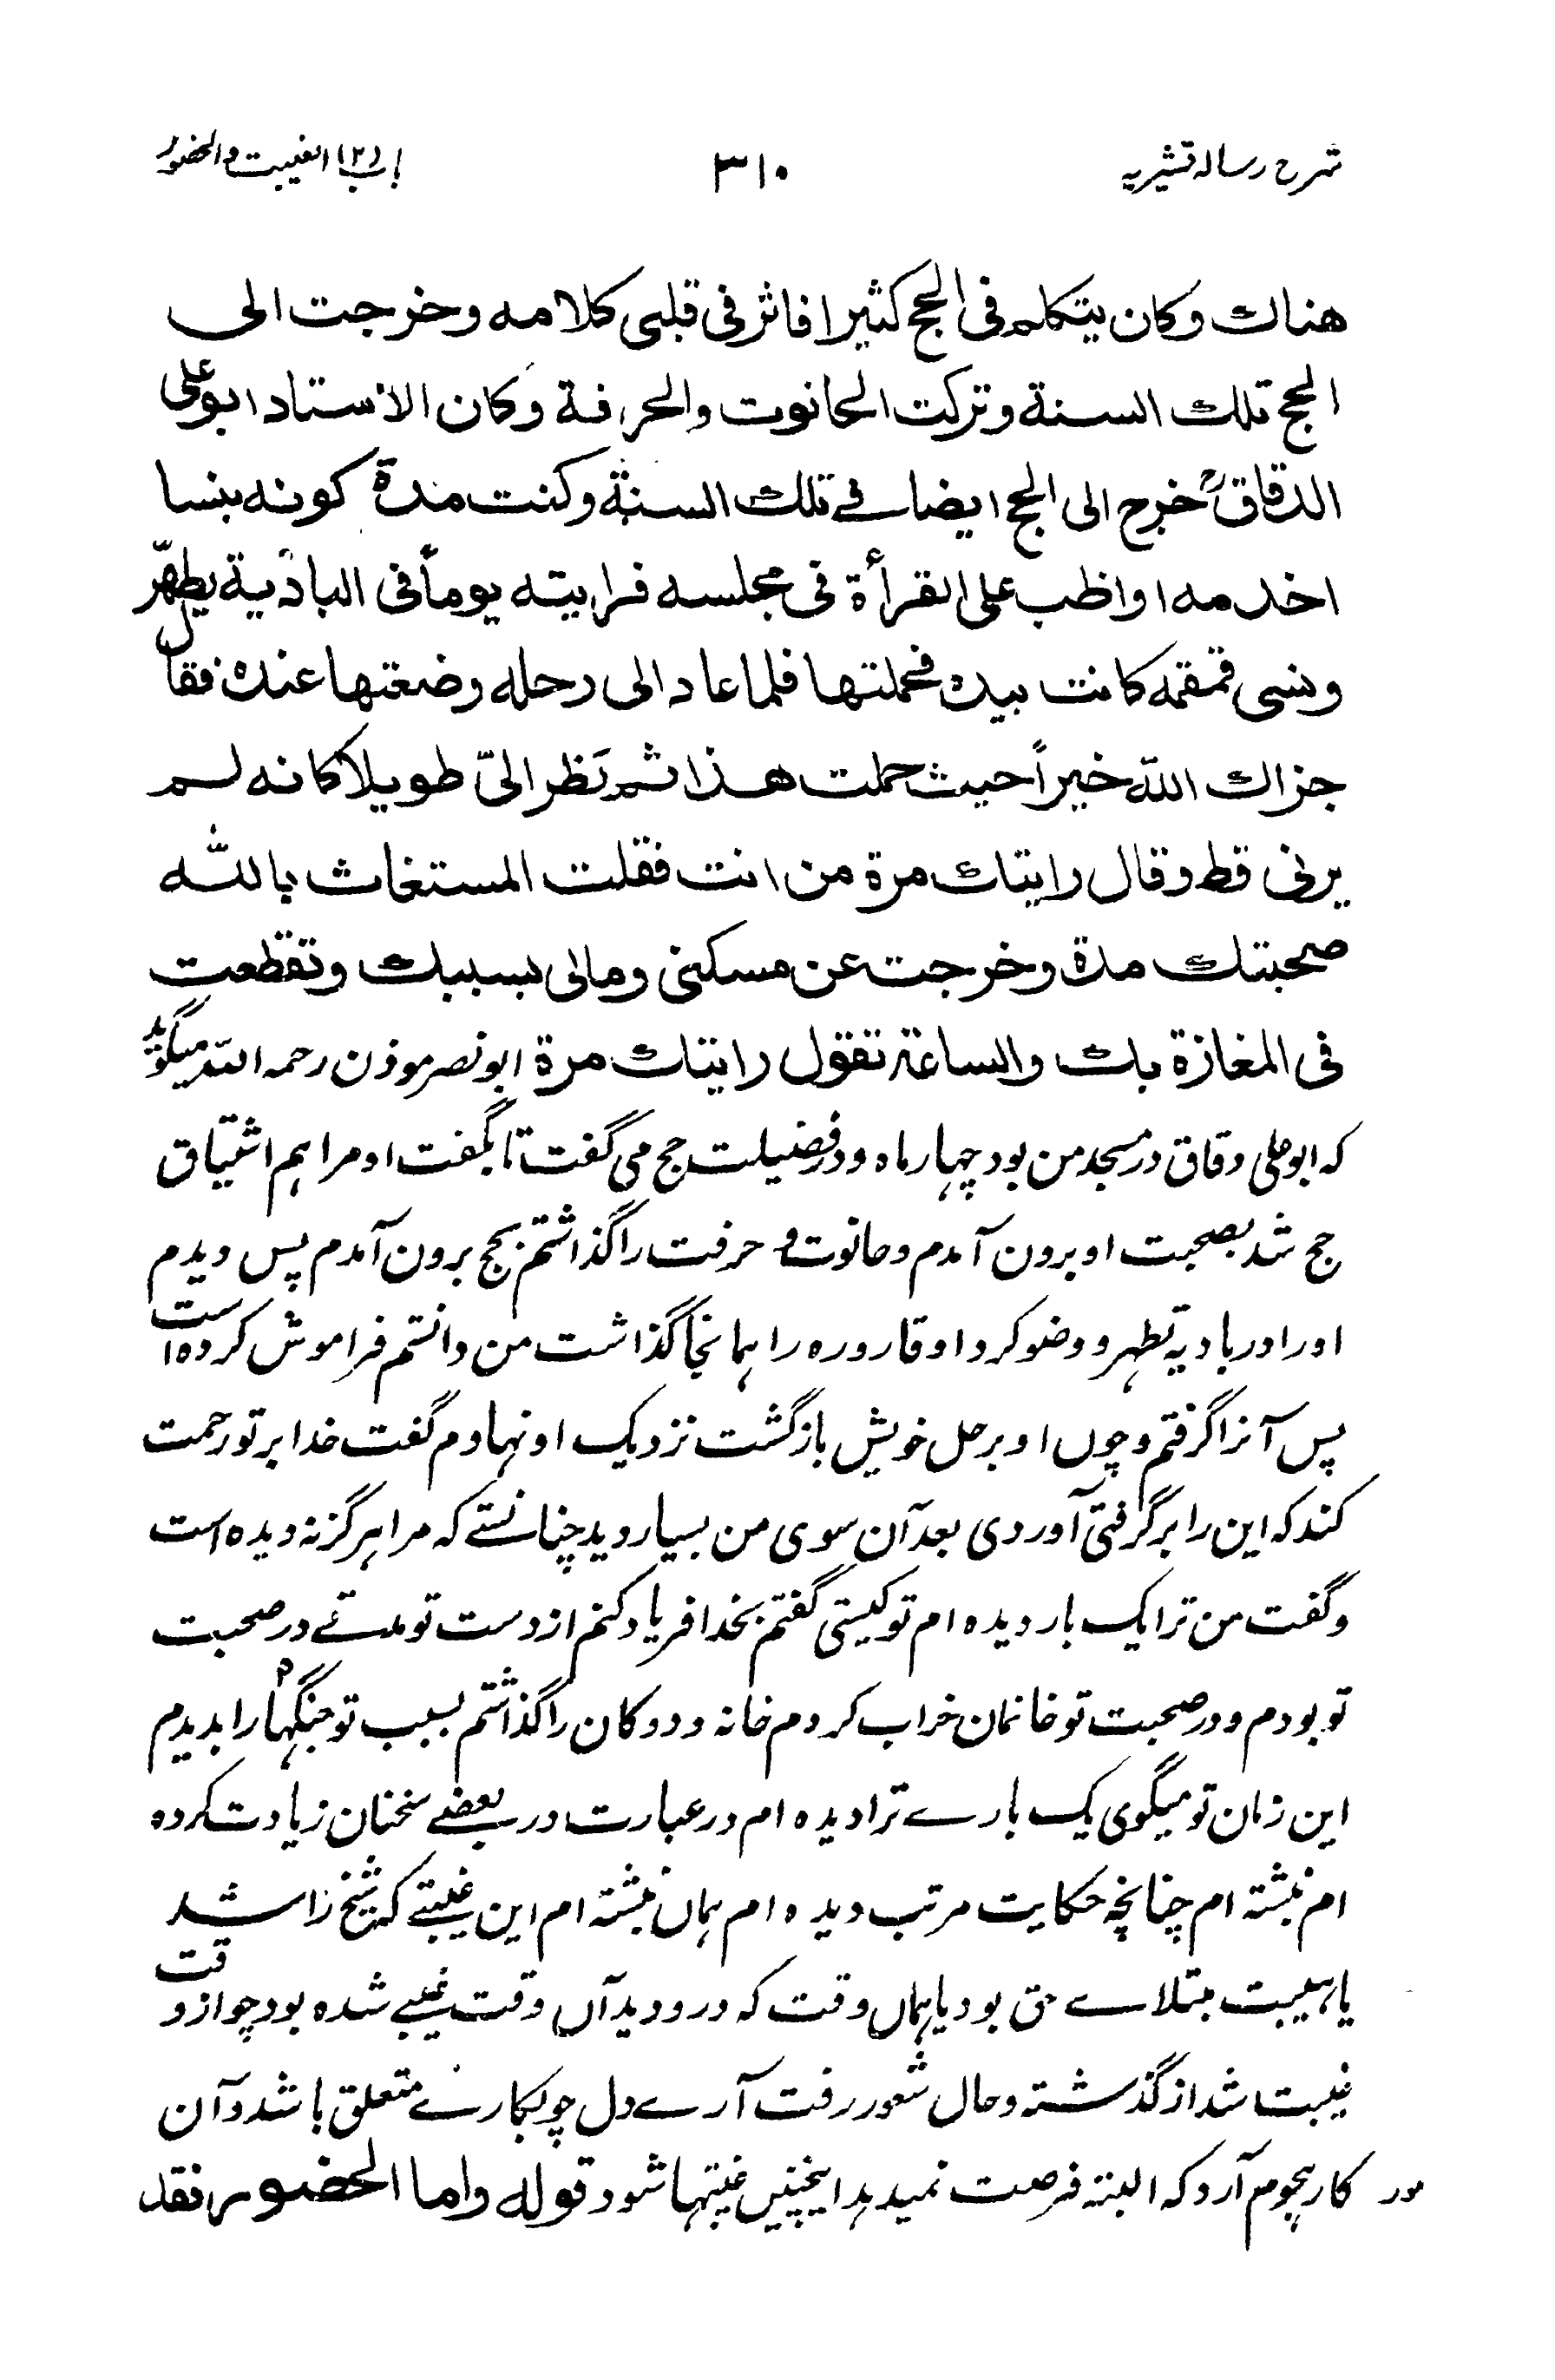 شرح رسالہ قشیریہ ۳۱۰ باب (۲) الغیبت والحضور
هناك وكان يتكلم فى الحج كثيرا فاثر فى قلبى كلامه وخرجت الى
الحج تلك السنة وتركت الحانوت والحرفة وكان الاستاد ابوعلى
الدقاقؒ خرج الى الحج ايضا فے تلك السنة وكنت مدة كونه بنسا
اخدمه اواظب على القرأة فى مجلسه فرايته يوماً فى البادية يطهّر
ونسى قمقمه كانت بيده فحملتها فلما عاد الى رحله وضعتها عنده فقال
جزاك اللّه خيراً حيث حملت هذا ثم نَظر الىّ طويلا كانه لم
يرنى قط وقال رايتك مرة من انت فقلت المستغاث باللّه
صحبتك مدة وخرجت عن مسكنى ومالى بسببك وتقطعت
فى المغازة بك والساعة تقول رايتك مرة ابونصر موذن رحمہ اللہ میگوید
کہ ابوعلی دقاق در مسجد من بود چہار ماہ ودر فضیلت حج می گفت تا بگفت او مرا ہم اشتیاق
حج شد بصحبت او برون آمدم وحانوت و حرفت را گذاشتم بحج برون آمدم پس دیدم
اورا در بادیہ تطہر و وضو کرد او قارورہ را ہمانجا گذاشت من دانستم فراموش کردہ است
پس آنرا گرفتم وچوں او برحل خویش بازگشت نزدیک او نہادم گفت خدا برتو رحمت
کند کہ این را برگرفتی آوردی بعد آن سوی من بسیار دید چنانستے کہ مرا ہرگز نہ دیدہ است
وگفت من ترا یک بار دیدہ ام تو کیستی گفتم بخدا فریاد کنم از دست تو مدتے در صحبت
تو بودم ودر صحبت تو خانمان خراب کردم خانہ ودوکان را گذاشتم بسبب تو جنگہا را بدیدم
این زمان تو میگوی یک بارے ترا دیدہ ام در عبارت در بعضے سخنان زیادت کردہ
ام نبشتہ ام چنانچہ حکایت مرتب دیدہ ام ہماں نبشتہ ام این غیبتے کہ شیخ را شد
یا ہیبت مبتلاے حق بود یا ہماں وقت کہ درو دید آں وقت غیبے شدہ بود چو ازو وقت
غیبت شد از گذشتہ وحال شعور رفت آرے دل چو بکارے متعلق باشد وآن
کار ہجوم آرد کہ البتہ فرصت نمیدہد اینچنیں غیبتہا شود قوله واما الحضور فقد